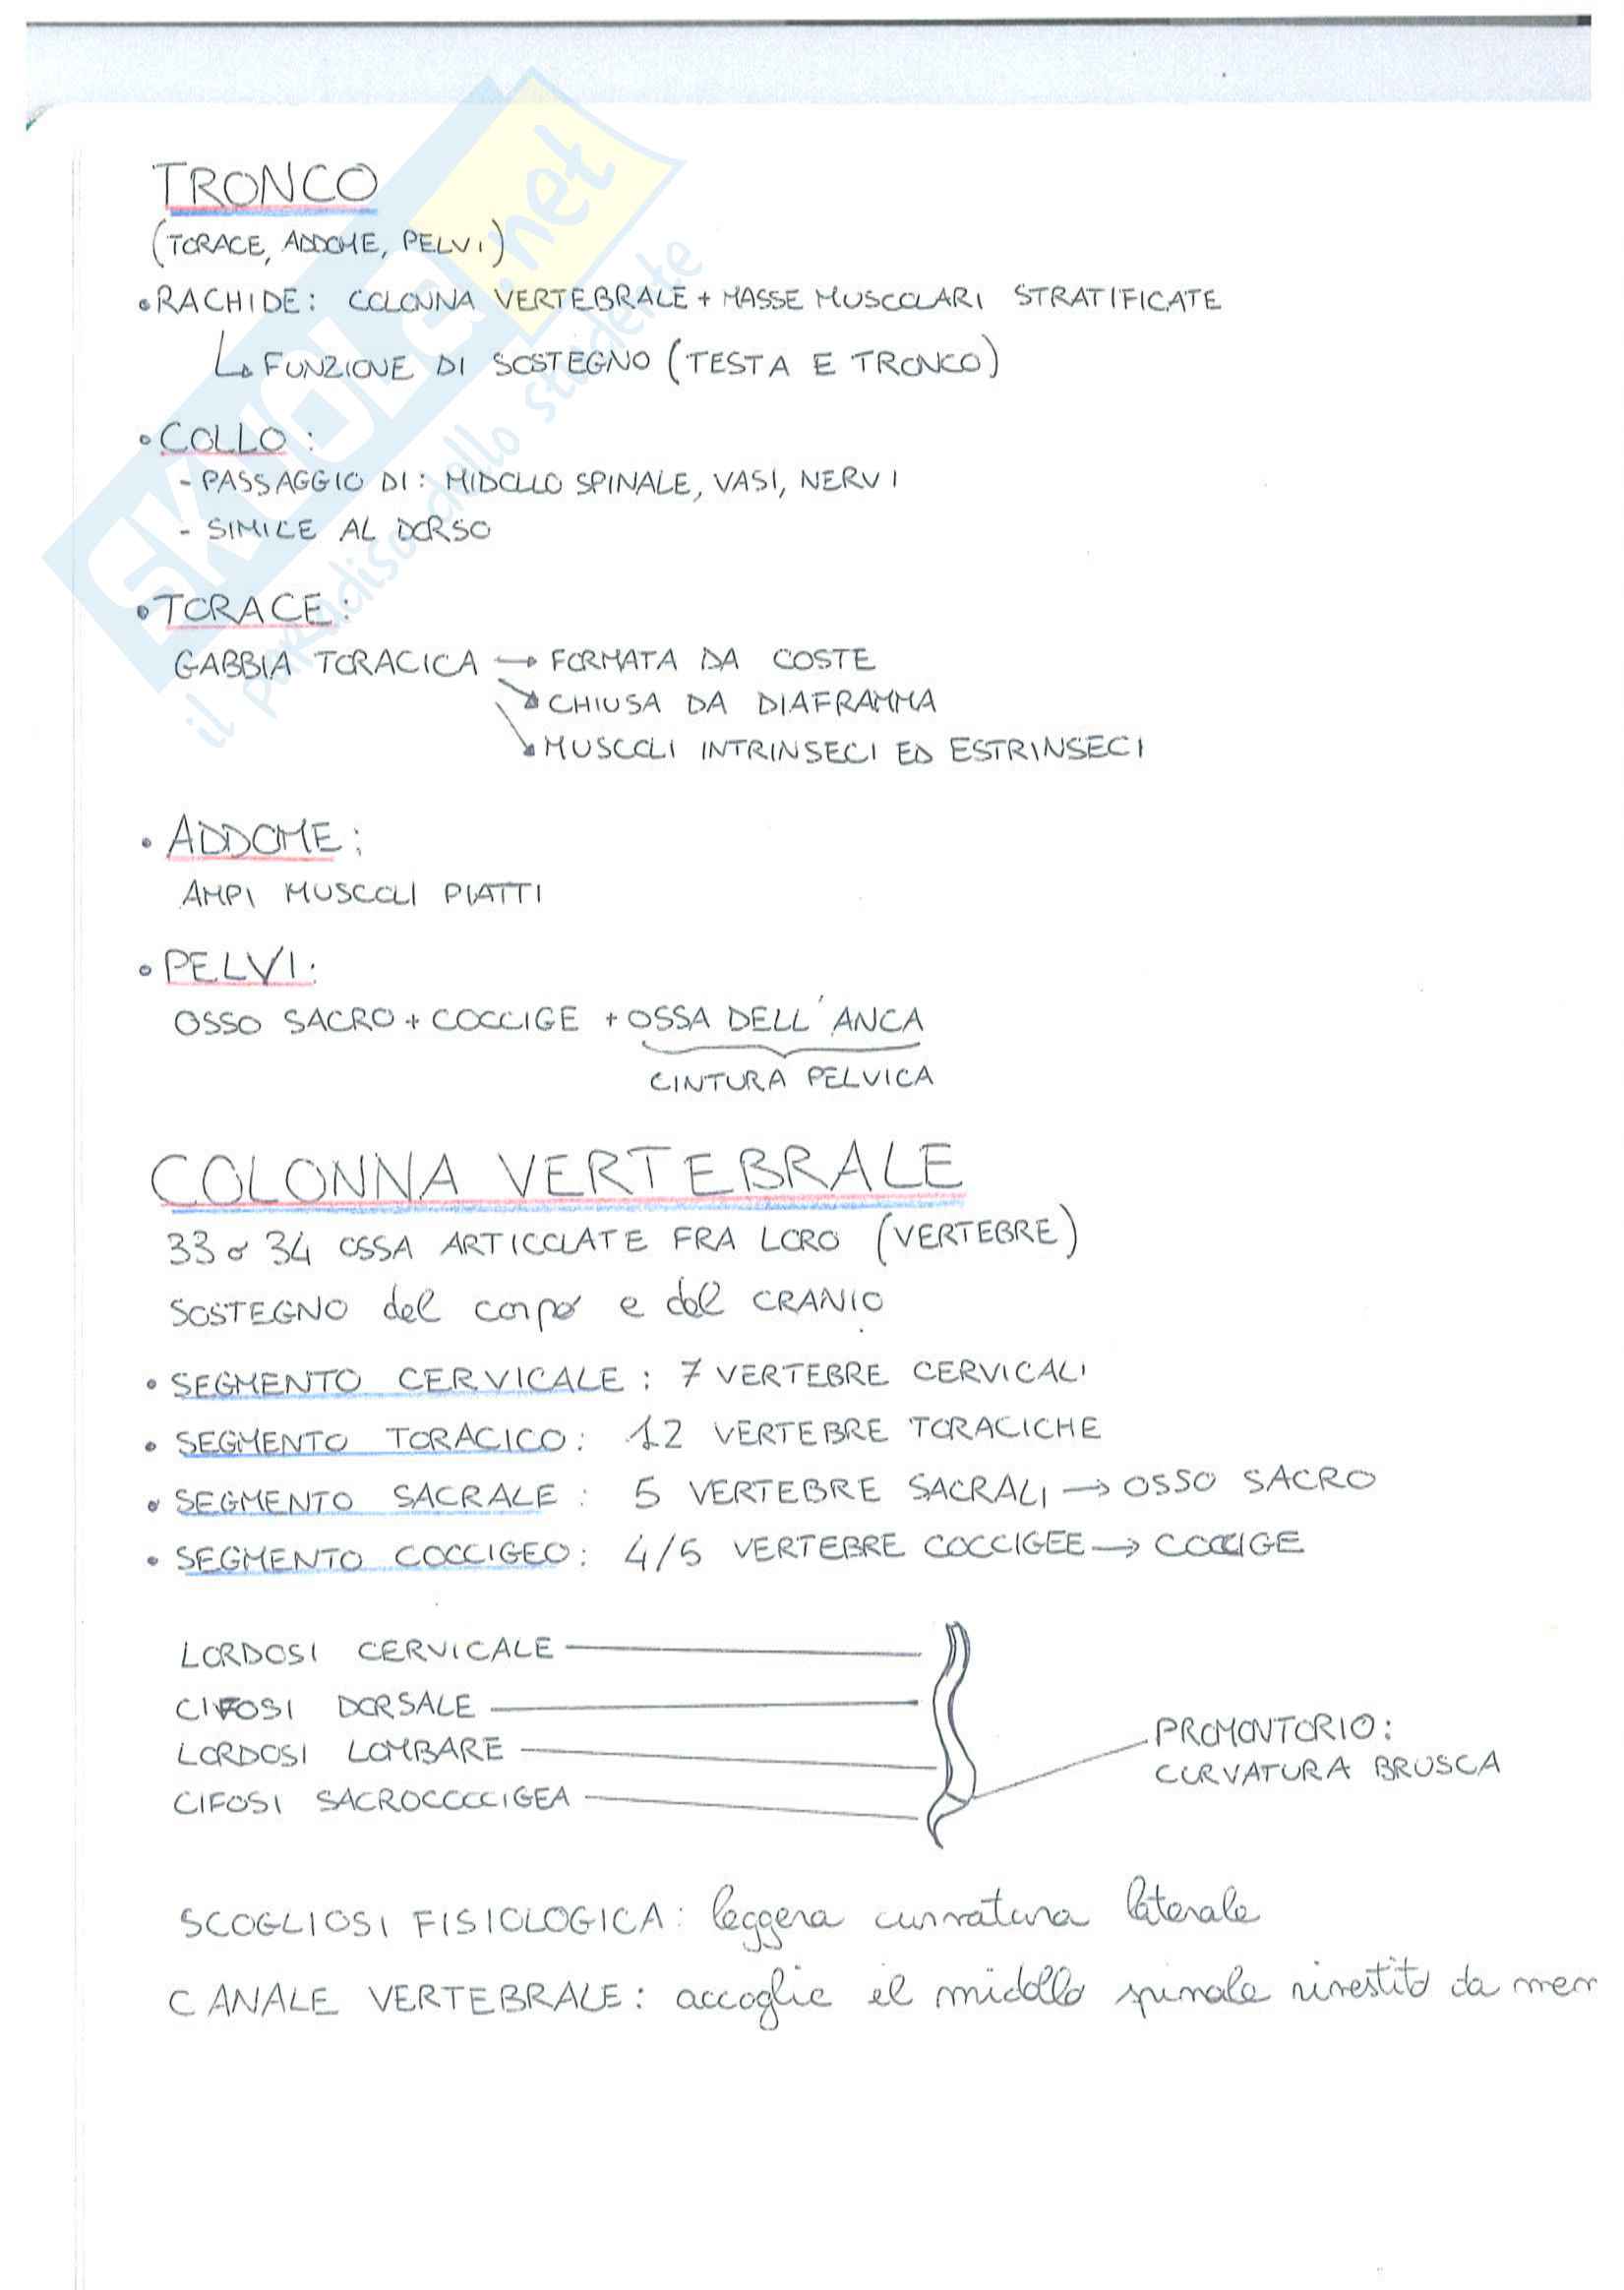 TRONCO
(TORACE, ADDOME, PELVI)
• RACHIDE: COLONNA VERTEBRALE + MASSE MUSCOLARI STRATIFICATE
↳ FUNZIONE DI SOSTEGNO (TESTA E TRONCO)
• COLLO:
- PASSAGGIO DI: MIDOLLO SPINALE, VASI, NERVI
- SIMILE AL DORSO
• TORACE:
GABBIA TORACICA → FORMATA DA COSTE
↘ CHIUSA DA DIAFRAMMA
↘ MUSCOLI INTRINSECI ED ESTRINSECI
• ADDOME:
AMPI MUSCOLI PIATTI
• PELVI:
OSSO SACRO + COCCIGE + OSSA DELL'ANCA
CINTURA PELVICA
COLONNA VERTEBRALE
33 o 34 OSSA ARTICOLATE FRA LORO (VERTEBRE)
SOSTEGNO del corpo e del CRANIO
• SEGMENTO CERVICALE: 7 VERTEBRE CERVICALI
• SEGMENTO TORACICO: 12 VERTEBRE TORACICHE
• SEGMENTO SACRALE: 5 VERTEBRE SACRALI → OSSO SACRO
• SEGMENTO COCCIGEO: 4/5 VERTEBRE COCCIGEE → COCCIGE
LORDOSI CERVICALE
CIFOSI DORSALE
LORDOSI LOMBARE
CIFOSI SACROCOCCIGEA
PROMONTORIO:
CURVATURA BRUSCA
SCOGLIOSI FISIOLOGICA: leggera curvatura laterale
CANALE VERTEBRALE: accoglie il midollo spinale rivestito da men
SKUOLA.net
il paradiso dello studente